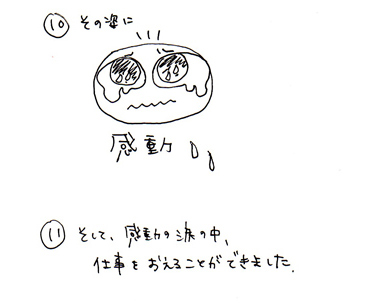 ⑩ その姿に
感動
⑪ そして、感動の涙の中、
仕事をおえることができました.